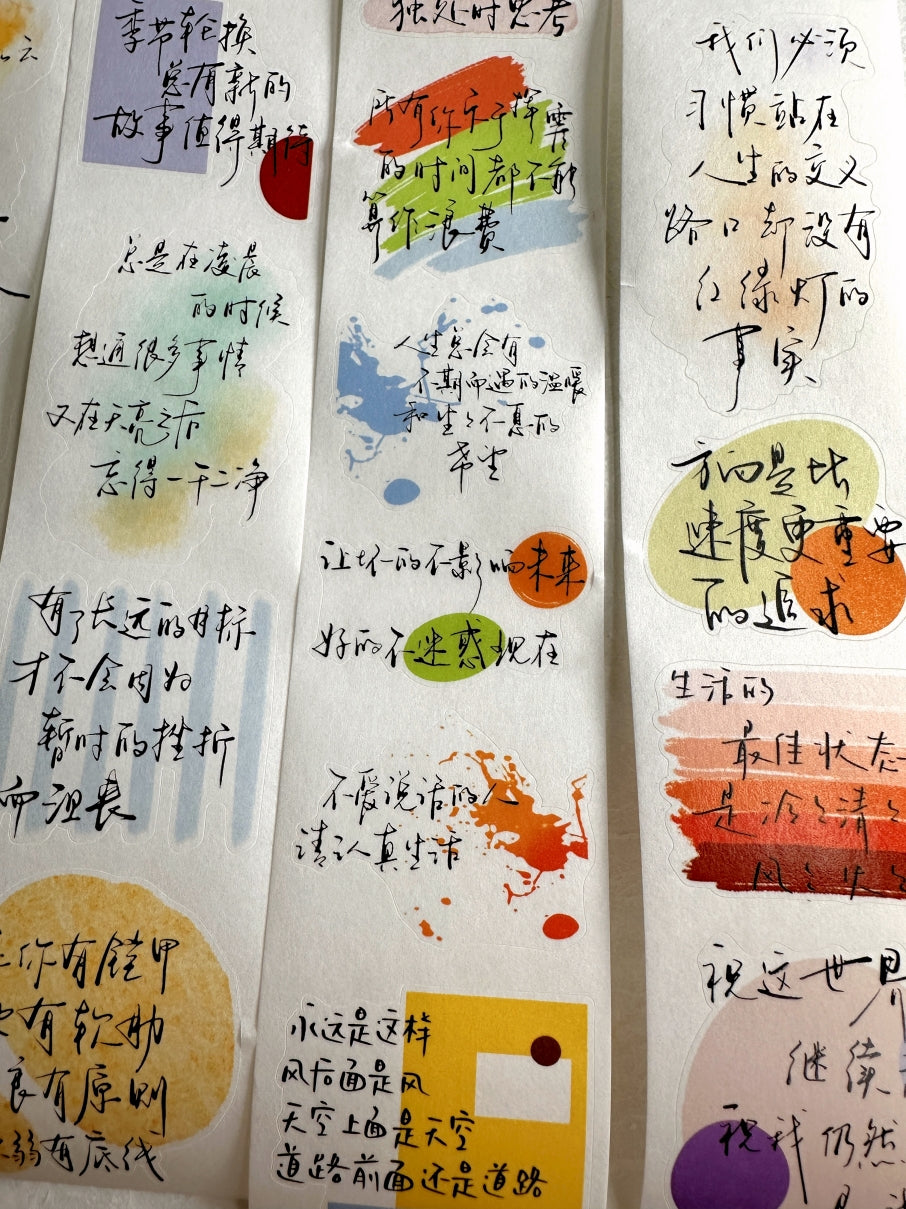 云
季节轮换
总有新的
故事值得期待
总是在凌晨
的时候
想通很多事情
又在天亮之后
忘得一干二净
有了长远的目标
才不会因为
暂时的挫折
而沮丧
你有铠甲
有软肋
良有原则
弱有底线
独处时思考
所有你乐于挥霍
的时间都不能
算作浪费
人生总会有
不期而遇的温暖
和生生不息的
希望
让坏的不影响未来
好的不迷惑现在
不爱说话的人
请认真生活
永远是这样
风后面是风
天空上面是天空
道路前面还是道路
我们必须
习惯站在
人生的交叉
路口却没有
红绿灯的
事实
方向是比
速度更重要
的追求
生活的
最佳状态
是冷冷清清
风风火火
祝这世界
继续
祝我仍然